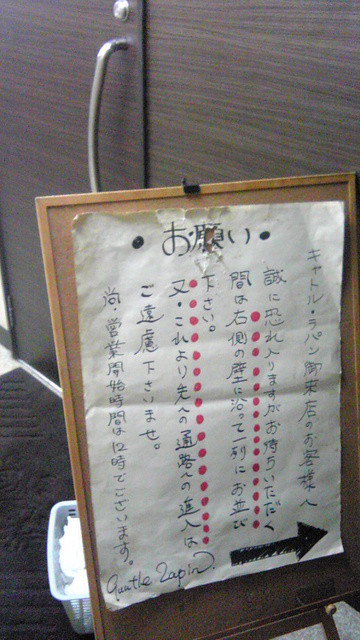 ・お願い・
キャトル・ラパン御来店のお客様へ
誠に恐れ入りますがお待ちいただく
間は右側の壁に沿って一列にお並び
下さい。
又、これより先への通路への進入は
ご遠慮下さいませ。
尚、営業開始時間は12時でございます。
Quatle Lapin